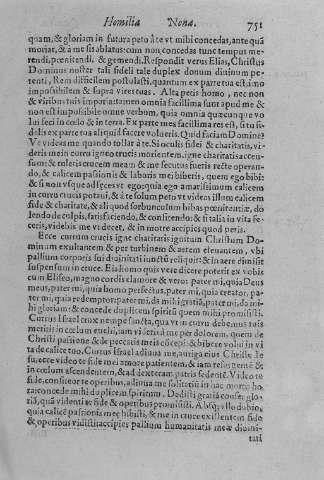 Homilia Nona. 751
quam, & gloriam in futura peto a te vt mihi concedas, ante quā
moriar, & a me sit ablatus: cum non concedas tunc tempus me-
rendi, pœnitendi. & gemendi. Respondit verus Elias, Christus
Dominus noster tali fideli tale duplex donum diuinum pe-
tenti, Rem difficilem postulasti, quantum ex parte tua est, imo
impossibilem & supra vires tuas. Alta petis homo, nec non
& viribus tuis importait amen omnia facillima sunt apud me &
non est impossibile omne verbum, quia omnia quæcunque vo
lui feci in cœlo & in terra. Ex parte mea facillima res est, si tu fi-
delis ex parte tua aliquid facere volueris. Quid faciam Domine?
Vt videas me quando tollar à te. Si oculis fidei & charitatis, vi-
deris me in curru igneo crucis morientem, igne charitatis accen-
sum: & toleris crucem meam & me secutus fueris recte operan-
do, & calicem passionis & laboris mei biberis, quem ego bibi:
& si non vsque ad feces vt ego: quia ego amarissimum calicem
in curru crucis potaui, & à te solum peto vt videas illum calicem
fide & charitate, & aliquod sorbunculum bibas pœnitentiæ, do
lendo de culpis, satisfaciendo, & confitendo: & si talia in vita fe-
ceris, videbis me vt decet, & in motre accipies quod peris.
Ecce currum crucis igne charitatis ignitum Christum Do-
minum exultantem & per turbinem & æstum eleuantem, vbi
pallium corporis sui diuinitati iunctū reliquit: & in aere dimisit
suspensum in cruce. Eia homo quis vere dicere poterit ex vobis
cum Eliseo, magno cordis clamore & veroꝰ pater mi, quia Deus
meus, pater mi, quia homo perfectus, pater mi, quia creator, pa-
ter mi, quia redemptor: pater mi, da mihi gratiā, pater mi, da mi-
hi gloriam: & concede duplicem spiritū quem mihi promisisti.
Currus Israel crux nempe sancta, qua vt in curru debemus tuis
meritis in cœlum euehi,
Christi passione & de peccatis meis
ta de calice tuo. Currus Israel adiuua me, auriga eius Christe Ie
su, ecce video te fide mei amore patientem, & iam resurgentē &
in cœlum ascendentem, & ad dexteram patris sedentē. Video te
fide, confiteor te operibus, adiuua me solicitatū in hac mortis ho-
ra: concede mihi duplicem spiritum. Dedisti gratiā confer glo-
riā, quā videnti ac fide & operibus promisisti. Absq; vllo dubio,
quia calicē passionis meæ bibisti, & me in cruce existentem fide
& operibus vidisti: accipies pallium humanitatis meæ diuini-
tati